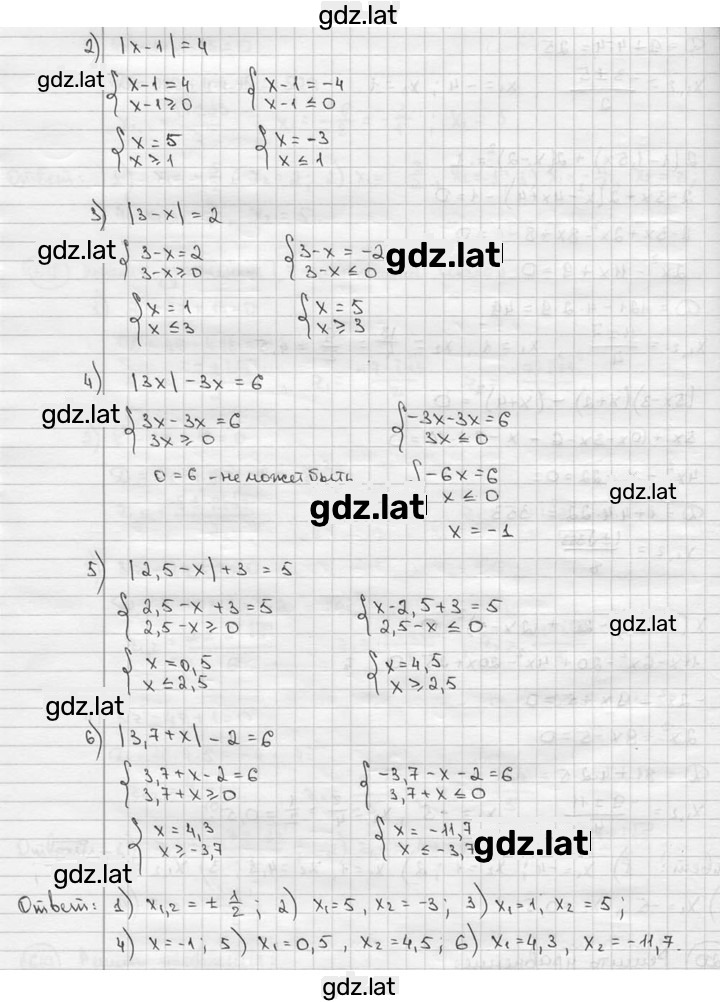 gdz.lat
2) |x-1| = 4
gdz.lat
{ x-1 = 4 { x-1 = -4
x-1 ≥ 0 x-1 ≤ 0
{ x = 5 { x = -3
x ≥ 1 x ≤ 1
3) |3-x| = 2
gdz.lat
{ 3-x = 2 { 3-x = -2 gdz.lat
3-x ≥ 0 3-x ≤ 0
{ x = 1 { x = 5
x ≤ 3 x ≥ 3
4) |3x| - 3x = 6
gdz.lat
{ 3x - 3x = 6 { -3x - 3x = 6
3x ≥ 0 3x ≤ 0
0 = 6 - не может быть { -6x = 6
gdz.lat x ≤ 0 gdz.lat
x = -1
5) |2,5-x| + 3 = 5
{ 2,5 - x + 3 = 5 { x - 2,5 + 3 = 5
2,5 - x ≥ 0 2,5 - x ≤ 0 gdz.lat
{ x = 0,5 { x = 4,5
x ≤ 2,5 x ≥ 2,5
gdz.lat
6) |3,7+x| - 2 = 6
{ 3,7 + x - 2 = 6 { -3,7 - x - 2 = 6
3,7 + x ≥ 0 3,7 + x ≤ 0
{ x = 4,3 { x = -11,7
x ≥ -3,7 x ≤ -3,7 gdz.lat
gdz.lat
Ответ: 1) x₁,₂ = ± 1/2 ; 2) x₁=5, x₂ = -3; 3) x₁=1, x₂ = 5;
4) x = -1; 5) x₁=0,5, x₂ = 4,5; 6) x₁=4,3, x₂ = -11,7.
gdz.lat